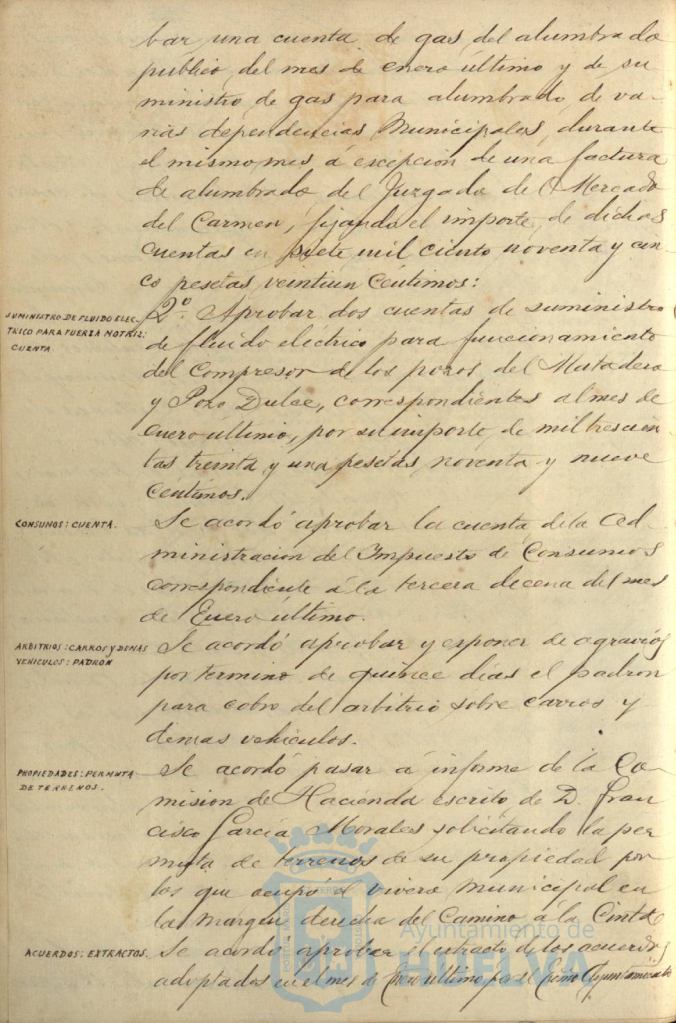 bar una cuenta de gas del alumbrado
público del mes de enero último y de su
ministro de gas para alumbrado de va-
rias dependencias Municipales, durante
el mismo mes á excepción de una factura
de alumbrado del Juzgado del Mercado
del Carmen, fijando el importe de dichas
cuentas en siete mil ciento noventa y cin
co pesetas veintiun céntimos:
SUMINISTRO DE FLUIDO ELEC-
TRICO PARA FUERZA MOTRIZ:
CUENTA
2º. Aprobar dos cuentas de suministro
de fluido eléctrico para funcionamiento
del Compresor de los pozos del Matadero
y Pozo Dulce, correspondientes al mes de
enero ultimo, por su importe de mil trescien
tas treinta y una pesetas noventa y nueve
céntimos.
CONSUMOS: CUENTA.
Se acordó aprobar la cuenta de la Ad-
ministracion del Impuesto de Consumos
correspondiente á la tercera decena del mes
de Enero último.
ARBITRIOS: CARROS Y DEMAS
VEHICULOS: PADRON
Se acordó aprobar y esponer de agravios
por termino de quince dias el padron
para cobro del arbitrio sobre carros y
demas vehiculos.
PROPIEDADES: PERMUTA
DE TERRENOS.
Se acordó pasar á informe de la Co-
mision de Hacienda escrito de D. Fran
cisco García Morales solicitando la per
muta de terrenos de su propiedad por
los que ocupó el vivero municipal en
la margen derecha del Camino á la Cinta
ACUERDOS: EXTRACTOS.
Se acordó aprobar el extracto de los acuerdos
adoptados en el mes de Enero ultimo por el Exmo Ayuntamiento
Ayuntamiento de
HUELVA